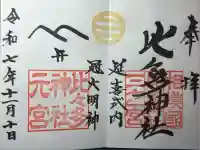 奉拝
比々多神社
延喜式内
冠大明神
比々多
神社
元宮
令和七年十一月十日